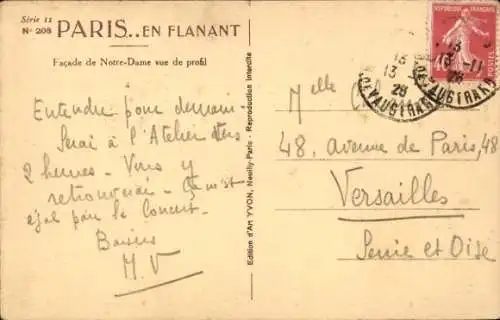 Série 11
N° 208 PARIS... EN FLANANT
Façade de Notre-Dame vue de profil
Entendu pour demain
Serai à l'Atelier vers
2 heures - Vous y
retrouverai - Ça m'est
égal pour le Concert.
Baisers
M. V
Edition d'Art YVON, Neuilly-Paris - Reproduction interdite
REPUBLIQUE FRANÇAISE
POSTES
13
13 - 11
28
DE VAUGIRARD
13
13
28
DE VAUGIRARD
Melle
48, avenue de Paris, 48
Versailles
Seine et Oise